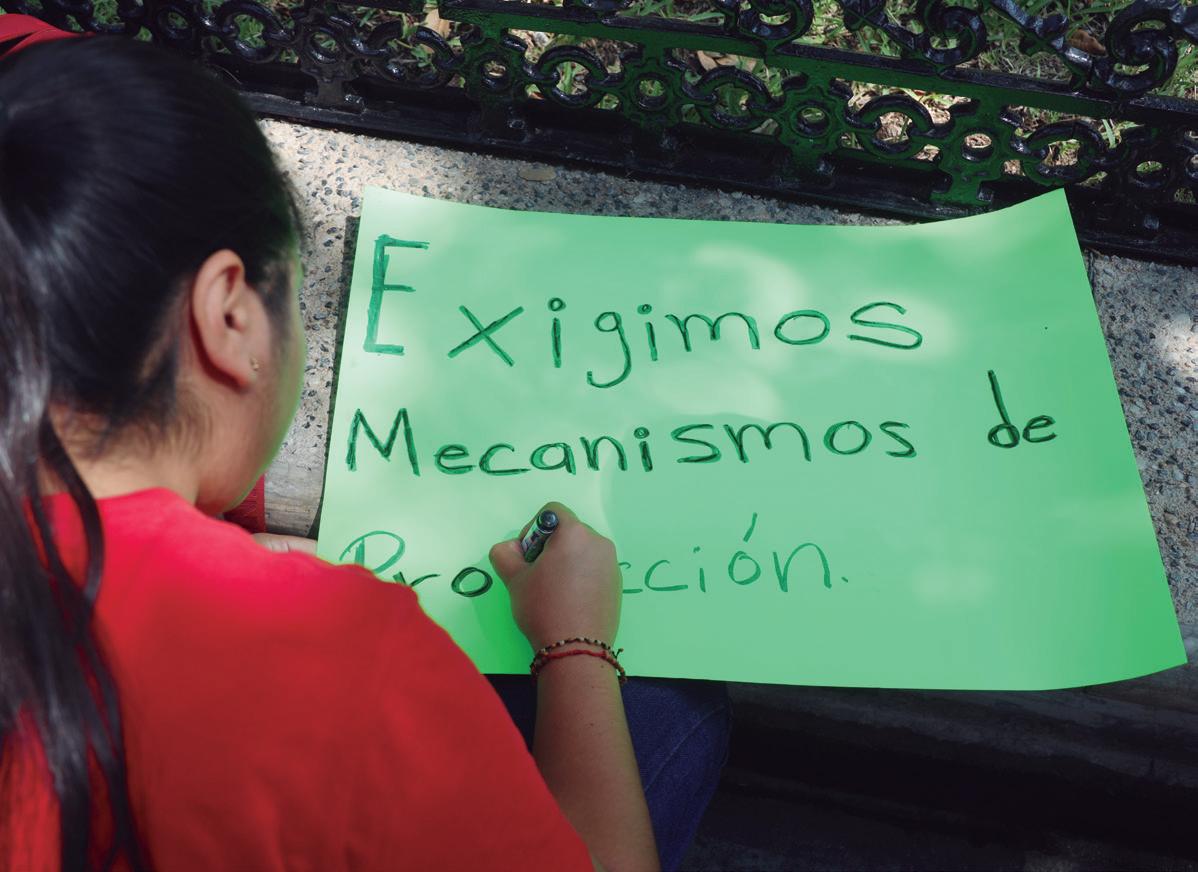 Exigimos
Mecanismos de
Protección.